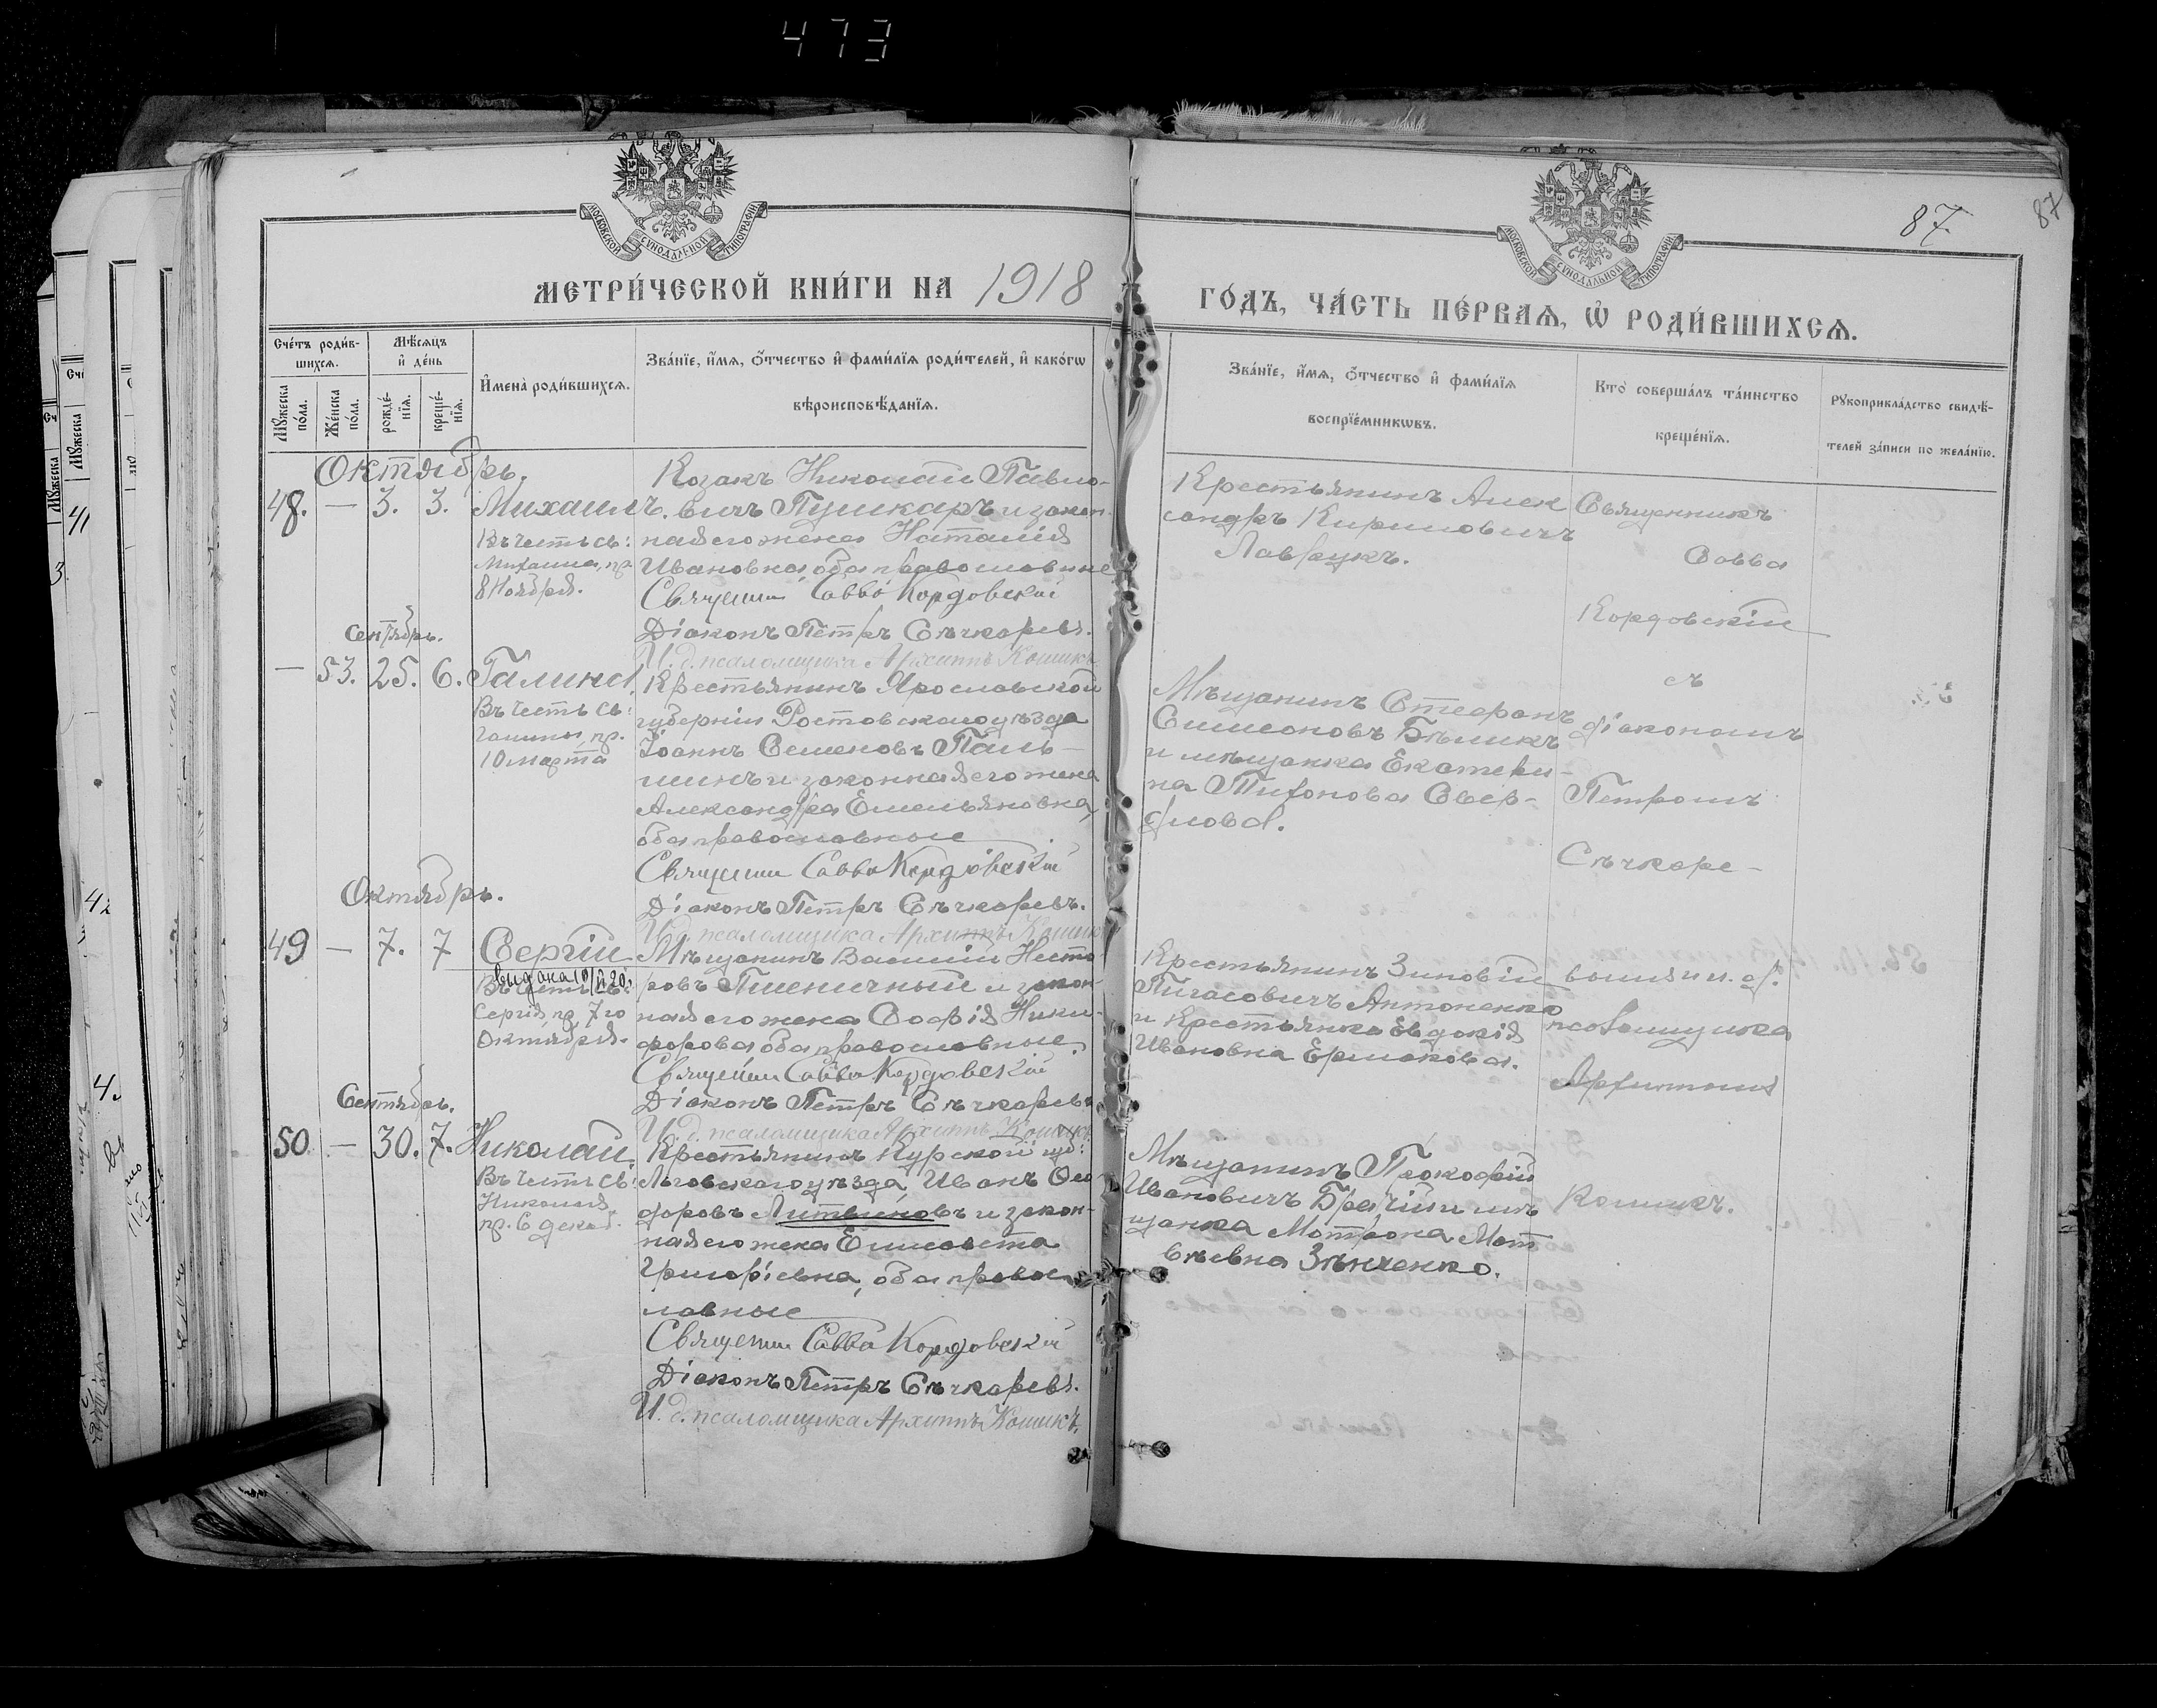 473
87
87
МОСКОВСКОЙ СѴНОДАЛЬНОЙ ТИПОГРАФІИ
МОСКОВСКОЙ СѴНОДАЛЬНОЙ ТИПОГРАФІИ
МЕТРИ́ЧЕСКОЙ КНИ́ГИ НА 1918
ГО́ДЪ, ЧА́СТЬ ПЕ́РВАѦ, Ѿ РОДИ́ВШИХСѦ.
Сче́тъ роди́в-
шихсѧ.
Мꙋжеска по́ла.
Же́нска по́ла.
Мѣ́сѧцъ
и҆ де́нь
рожде́-
нїѧ.
креще́-
нїѧ.
И҆мена̀ роди́вшихсѧ.
Зва́нїе, и҆́мѧ, ѻ҆́тчество и҆ фами́лїѧ роди́телей, и҆ како́гѡ
вѣроисповѣ́данїѧ.
Зва́нїе, и҆́мѧ, ѻ҆́тчество и҆ фами́лїѧ
воспрїе́мникѡвъ.
Кто̀ соверша́лъ та́инство
креще́нїѧ.
Рꙋкоприкла́дство свидѣ́-
телей за́писи по жела́нїю.
Октябрь.
48. — 3. 3. Михаилъ.
Въ честь св:
Михаила, пр.
8 Ноября.
Козакъ Николай Павло-
вичъ Пушкаръ и закон-
ная его жена Наталія
Ивановна оба православные
Священник Савва Кордовскій
Діаконъ Петръ Сѣчкаревъ.
И. д. псаломщика Архиппъ Кошикъ
Крестьянинъ Алек
сандръ Кириловичъ
Лаврукъ.
Священникъ
Савва
Кордовскій
съ
діакономъ
Петромъ
Сѣчкаре-
вымъ и и. об.
псаломщика
Архиппомъ
Кошикъ.
Сентябрь.
— 53. 25. 6. Галина.
Въ честь св:
Галины, пр.
10 марта
Крестьянинъ Ярославской
губерніи Ростовскаго уѣзда
Іоаннъ Семеновъ Паль-
шинъ и законная его жена
Александра Емельяновна,
оба православные
Священник Савва Кордовскій
Діаконъ Петръ Сѣчкаревъ.
И. д. псаломщика Архиппъ Кошикъ
Мѣщанинъ Стефанъ
Симеоновъ Бѣликъ
и мѣщанка Екатери-
на Тихонова Свер-
длова.
Октябрь.
49 — 7. 7 Сергій
выдана
Въ честь св:
Сергія, пр. 7го
Октября.
Мѣщанинъ Василій Несто-
ровъ Пшеничный и закон-
ная его жена Софія Ники-
форова оба православные.
Священник Савва Кордовскій
Діаконъ Петръ Сѣчкаревъ
И. д. псаломщика Архиппъ Кошикъ
Крестьянинъ Зиновій
Пигасовичъ Антоненко
и Крестьянка Евдокія
Ивановна Ермакова.
Сентябрь.
50. — 30. 7. Николай.
Въ честь св:
Николая
пр. 6 декаб.
Крестьянинъ Курской губ:
Льговскаго уѣзда, Иванъ Ѳео
доровъ Литвиновъ и закон-
ная его жена Елисавета
Григорьевна, оба правос
лавные
Священник Савва Кордовскій
Діаконъ Петръ Сѣчкаревъ.
И. д. псаломщика Архиппъ Кошикъ.
Мѣщанинъ Прокофій
Ивановичъ
щанка Матрона Мат
вѣевна Зѣнченко.